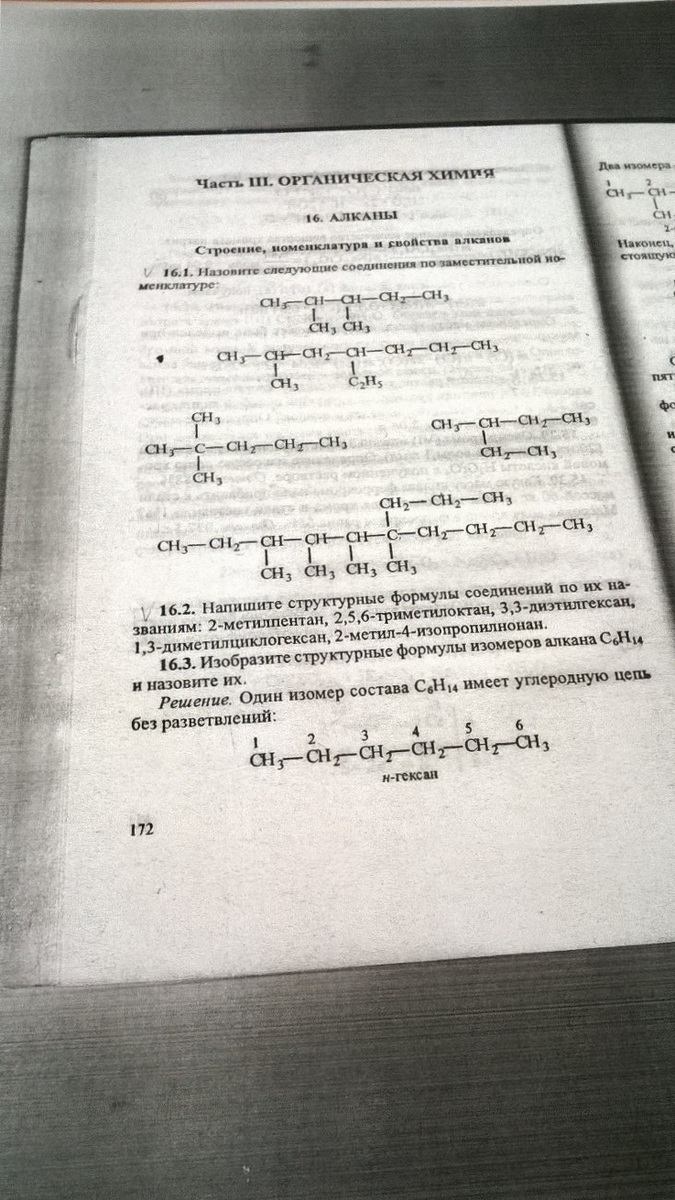 Часть III. ОРГАНИЧЕСКАЯ ХИМИЯ
16. АЛКАНЫ
Строение, номенклатура и свойства алканов
16.1. Назовите следующие соединения по заместительной но-
менклатуре:
CH₃—CH—CH—CH₂—CH₃
CH₃ CH₃
CH₃—CH—CH₂—CH—CH₂—CH₂—CH₃
CH₃ C₂H₅
CH₃
CH₃—C—CH₂—CH₂—CH₃
CH₃
CH₃—CH—CH₂—CH₃
CH₂—CH₃
CH₂—CH₂—CH₃
CH₃—CH₂—CH—CH—CH—C—CH₂—CH₂—CH₂—CH₃
CH₃ CH₃ CH₃ CH₃
16.2. Напишите структурные формулы соединений по их на-
званиям: 2-метилпентан, 2,5,6-триметилоктан, 3,3-диэтилгексан,
1,3-диметилциклогексан, 2-метил-4-изопропилнонан.
16.3. Изобразите структурные формулы изомеров алкана C₆H₁₄
и назовите их.
Решение. Один изомер состава C₆H₁₄ имеет углеродную цепь
без разветвлений:
1 2 3 4 5 6
CH₃—CH₂—CH₂—CH₂—CH₂—CH₃
н-гексан
172
Два изомера
1 2
CH₃—CH—
CH
Наконец,